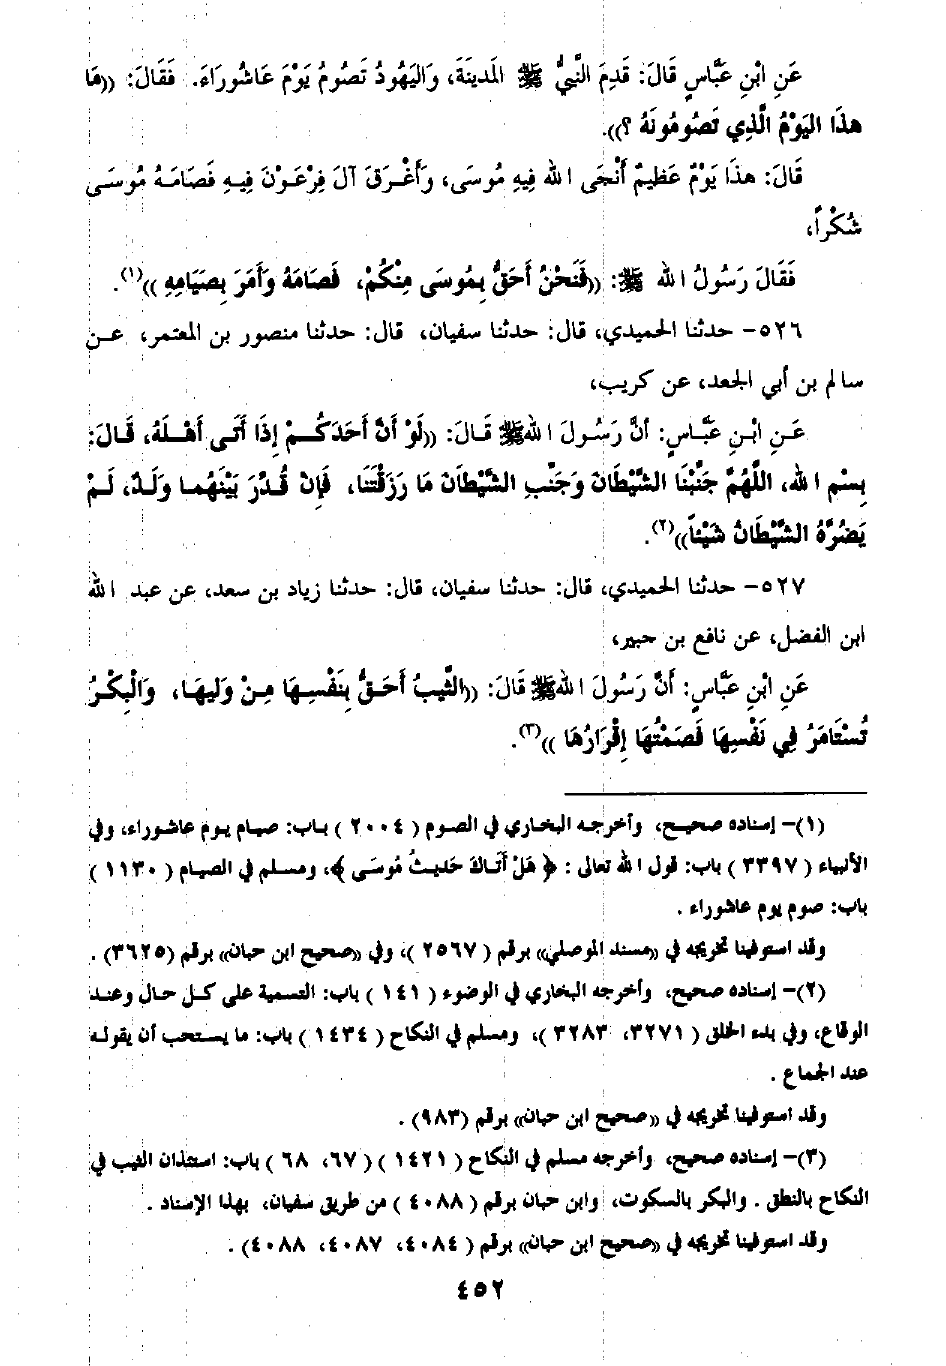 عَنِ ابْنِ عَبَّاسٍ قَالَ: قَدِمَ النَّبِيُّ ﷺ المَدِينَةَ، وَاليَهُودُ تَصُومُ يَوْمَ عَاشُورَاءَ. فَقَالَ: ((مَا
هذَا اليَوْمُ الَّذِي تَصُومُونَهُ ؟)).
قَالَ: هذَا يَوْمٌ عَظِيمٌ أَنْجَى الله فِيهِ مُوسَى، وَأَغْرَقَ آلَ فِرْعَوْنَ فِيهِ فَصَامَهُ مُوسَى
شُكْراً،
فَقَالَ رَسُولُ الله ﷺ: ((فَنَحْنُ أَحَقُّ بِمُوسَى مِنْكُمْ، فَصَامَهُ وَأَمَرَ بِصِيَامِهِ ))(١).
٥٢٦- حدثنا الحميدي، قال: حدثنا سفيان، قال: حدثنا منصور بن المعتمر، عن
سالم بن أبي الجعد، عن كريب،
عَنِ ابْنِ عَبَّاسٍ: أَنَّ رَسُولَ الله ﷺ قَالَ: ((لَوْ أَنَّ أَحَدَكُمْ إِذَا أَتَى أَهْلَهُ، قَالَ:
بِسْمِ الله، اللَّهُمَّ جَنِّبْنَا الشَّيْطَانَ وَجَنِّبِ الشَّيْطَانَ مَا رَزَقْتَنَا، فَإِنْ قُدِّرَ بَيْنَهُمَا وَلَدٌ، لَمْ
يَضُرَّهُ الشَّيْطَانُ شَيْئاً))(٢).
٥٢٧- حدثنا الحميدي، قال: حدثنا سفيان، قال: حدثنا زياد بن سعد، عن عبد الله
ابن الفضل، عن نافع بن جبير،
عَنِ ابْنِ عَبَّاسٍ: أَنَّ رَسُولَ الله ﷺ قَالَ: ((الثَّيِّبُ أَحَقُّ بِنَفْسِهَا مِنْ وَلِيهَا، وَالْبِكْرُ
تُسْتَامَرُ فِي نَفْسِهَا فَصَمْتُهَا إِقْرَارُهَا ))(٣).
(١)- إسناده صحيح، وأخرجه البخاري في الصوم ( ٢٠٠٤ ) باب: صيام يوم عاشوراء، وفي
الأنبياء ( ٣٣٩٧ ) باب: قول الله تعالى : ﴿ هَلْ أَتَاكَ حَدِيثُ مُوسَى ﴾، ومسلم في الصيام ( ١١٣٠ )
باب: صوم يوم عاشوراء .
وقد استوفينا تخريجه في ((مسند الموصلي)) برقم ( ٢٥٦٧ )، وفي ((صحيح ابن حبان)) برقم (٣٦٢٥) .
(٢)- إسناده صحيح، وأخرجه البخاري في الوضوء ( ١٤١ ) باب: التسمية على كل حال وعند
الوقاع، وفي بدء الخلق ( ٣٢٧١، ٣٢٨٣ )، ومسلم في النكاح ( ١٤٣٤ ) باب: ما يستحب أن يقوله
عند الجماع .
وقد استوفينا تخريجه في ((صحيح ابن حبان)) برقم (٩٨٣) .
(٣)- إسناده صحيح، وأخرجه مسلم في النكاح ( ١٤٢١ ) ( ٦٧، ٦٨ ) باب: استئذان الثيب في
النكاح بالنطق . والبكر بالسكوت، وابن حبان برقم ( ٤٠٨٨ ) من طريق سفيان، بهذا الإسناد .
وقد استوفينا تخريجه في ((صحيح ابن حبان)) برقم ( ٤٠٨٤، ٤٠٨٧، ٤٠٨٨) .
٤٥٢